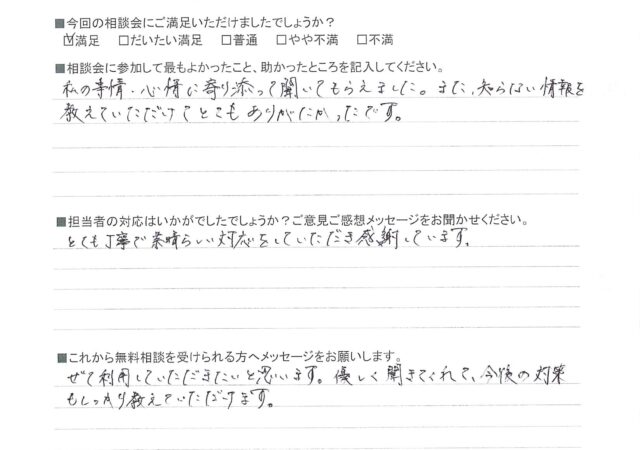 ■今回の相談会にご満足いただけましたでしょうか？
☑満足　□だいたい満足　□普通　□やや不満　□不満
■相談会に参加して最もよかったこと、助かったところを記入してください。
私の事情・心情に寄り添って聞いてもらえました。また、知らない情報を
教えていただけてとてもありがたかったです。
■担当者の対応はいかがでしたでしょうか？ご意見ご感想メッセージをお聞かせください。
とても丁寧で素晴らしい対応をしていただき感謝しています。
■これから無料相談を受けられる方へメッセージをお願いします。
ぜひ利用していただきたいと思います。優しく聞きてくれて、今後の対策
もしっかり教えていただけます。